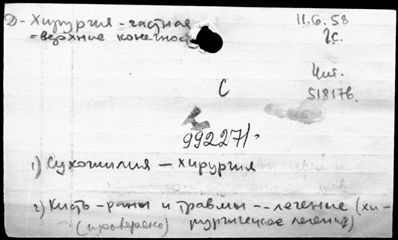 D- Хирургия - частная
- верхние конечнос
11.6.58
2с.
Чит.
51817б.
С
99227/-
1) Сухожилия - хирургия
2) Кисть - раны и травмы -- лечение (хи-
(проверено) рургическое лечение)